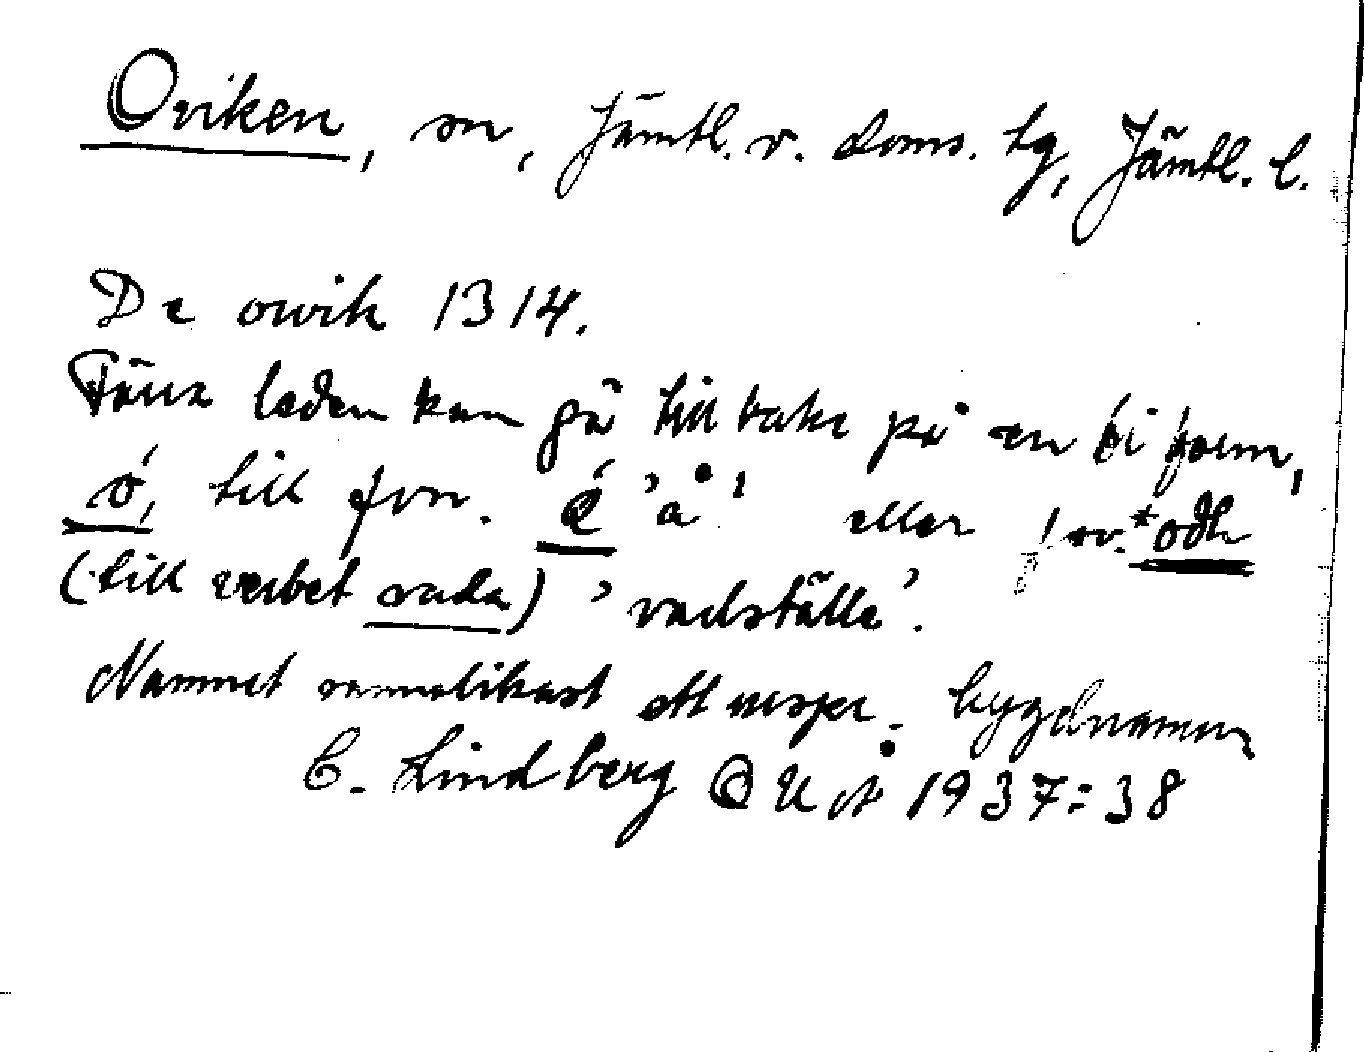 Oviken, sn, Jämtl. v. doms. tg, Jämtl. l.
De owik 1314.
Förra leden kan gå tillbaka på en biform,
ó, till fvn. á 'å' eller fsv. *odh
(till verbet vada) 'vadställe'.
Namnet sannolikast ett urspr. bygdnamn
C. Lindberg OUÅ 1937:38